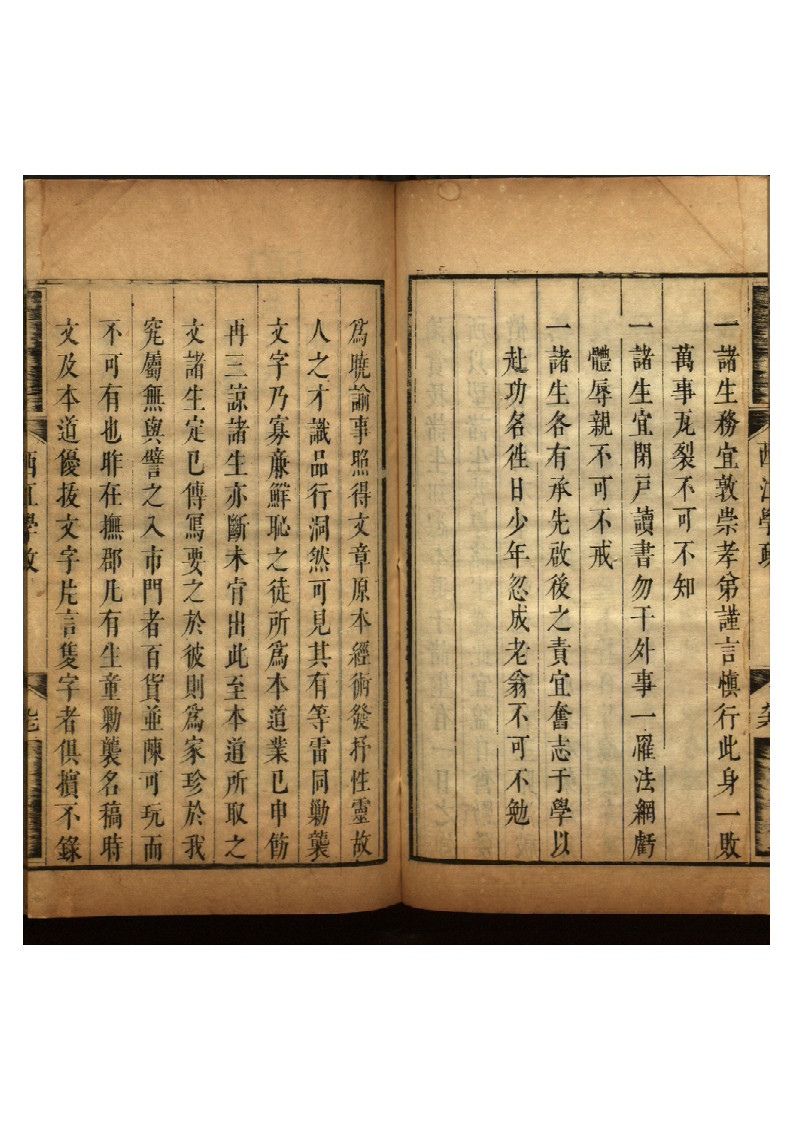 一諸生務宜敦崇孝弟謹言慎行此身一敗
萬事瓦裂不可不知
一諸生宜閉戸讀書勿干外事一罹法網虧
體辱親不可不戒
一諸生各有承先啟後之責宜奮志于學以
赴功名徃日少年忽成老翁不可不勉
爲曉諭事照得文章原本經術發抒性靈故
人之才識品行洞然可見其有等雷同勦襲
文字乃寡廉鮮恥之徒所爲本道業已申飭
再三諒諸生亦斷未肯出此至本道所取之
文諸生定已傳寫要之於彼則爲家珍於我
究屬無與譬之入市門者百貨並陳可玩而
不可有也昨在撫郡凡有生童勦襲名稿時
文及本道優拔文字片言隻字者俱擯不錄
西江學政